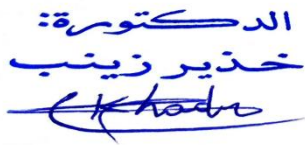 الدكتورة:
خذير زينب
Khadir